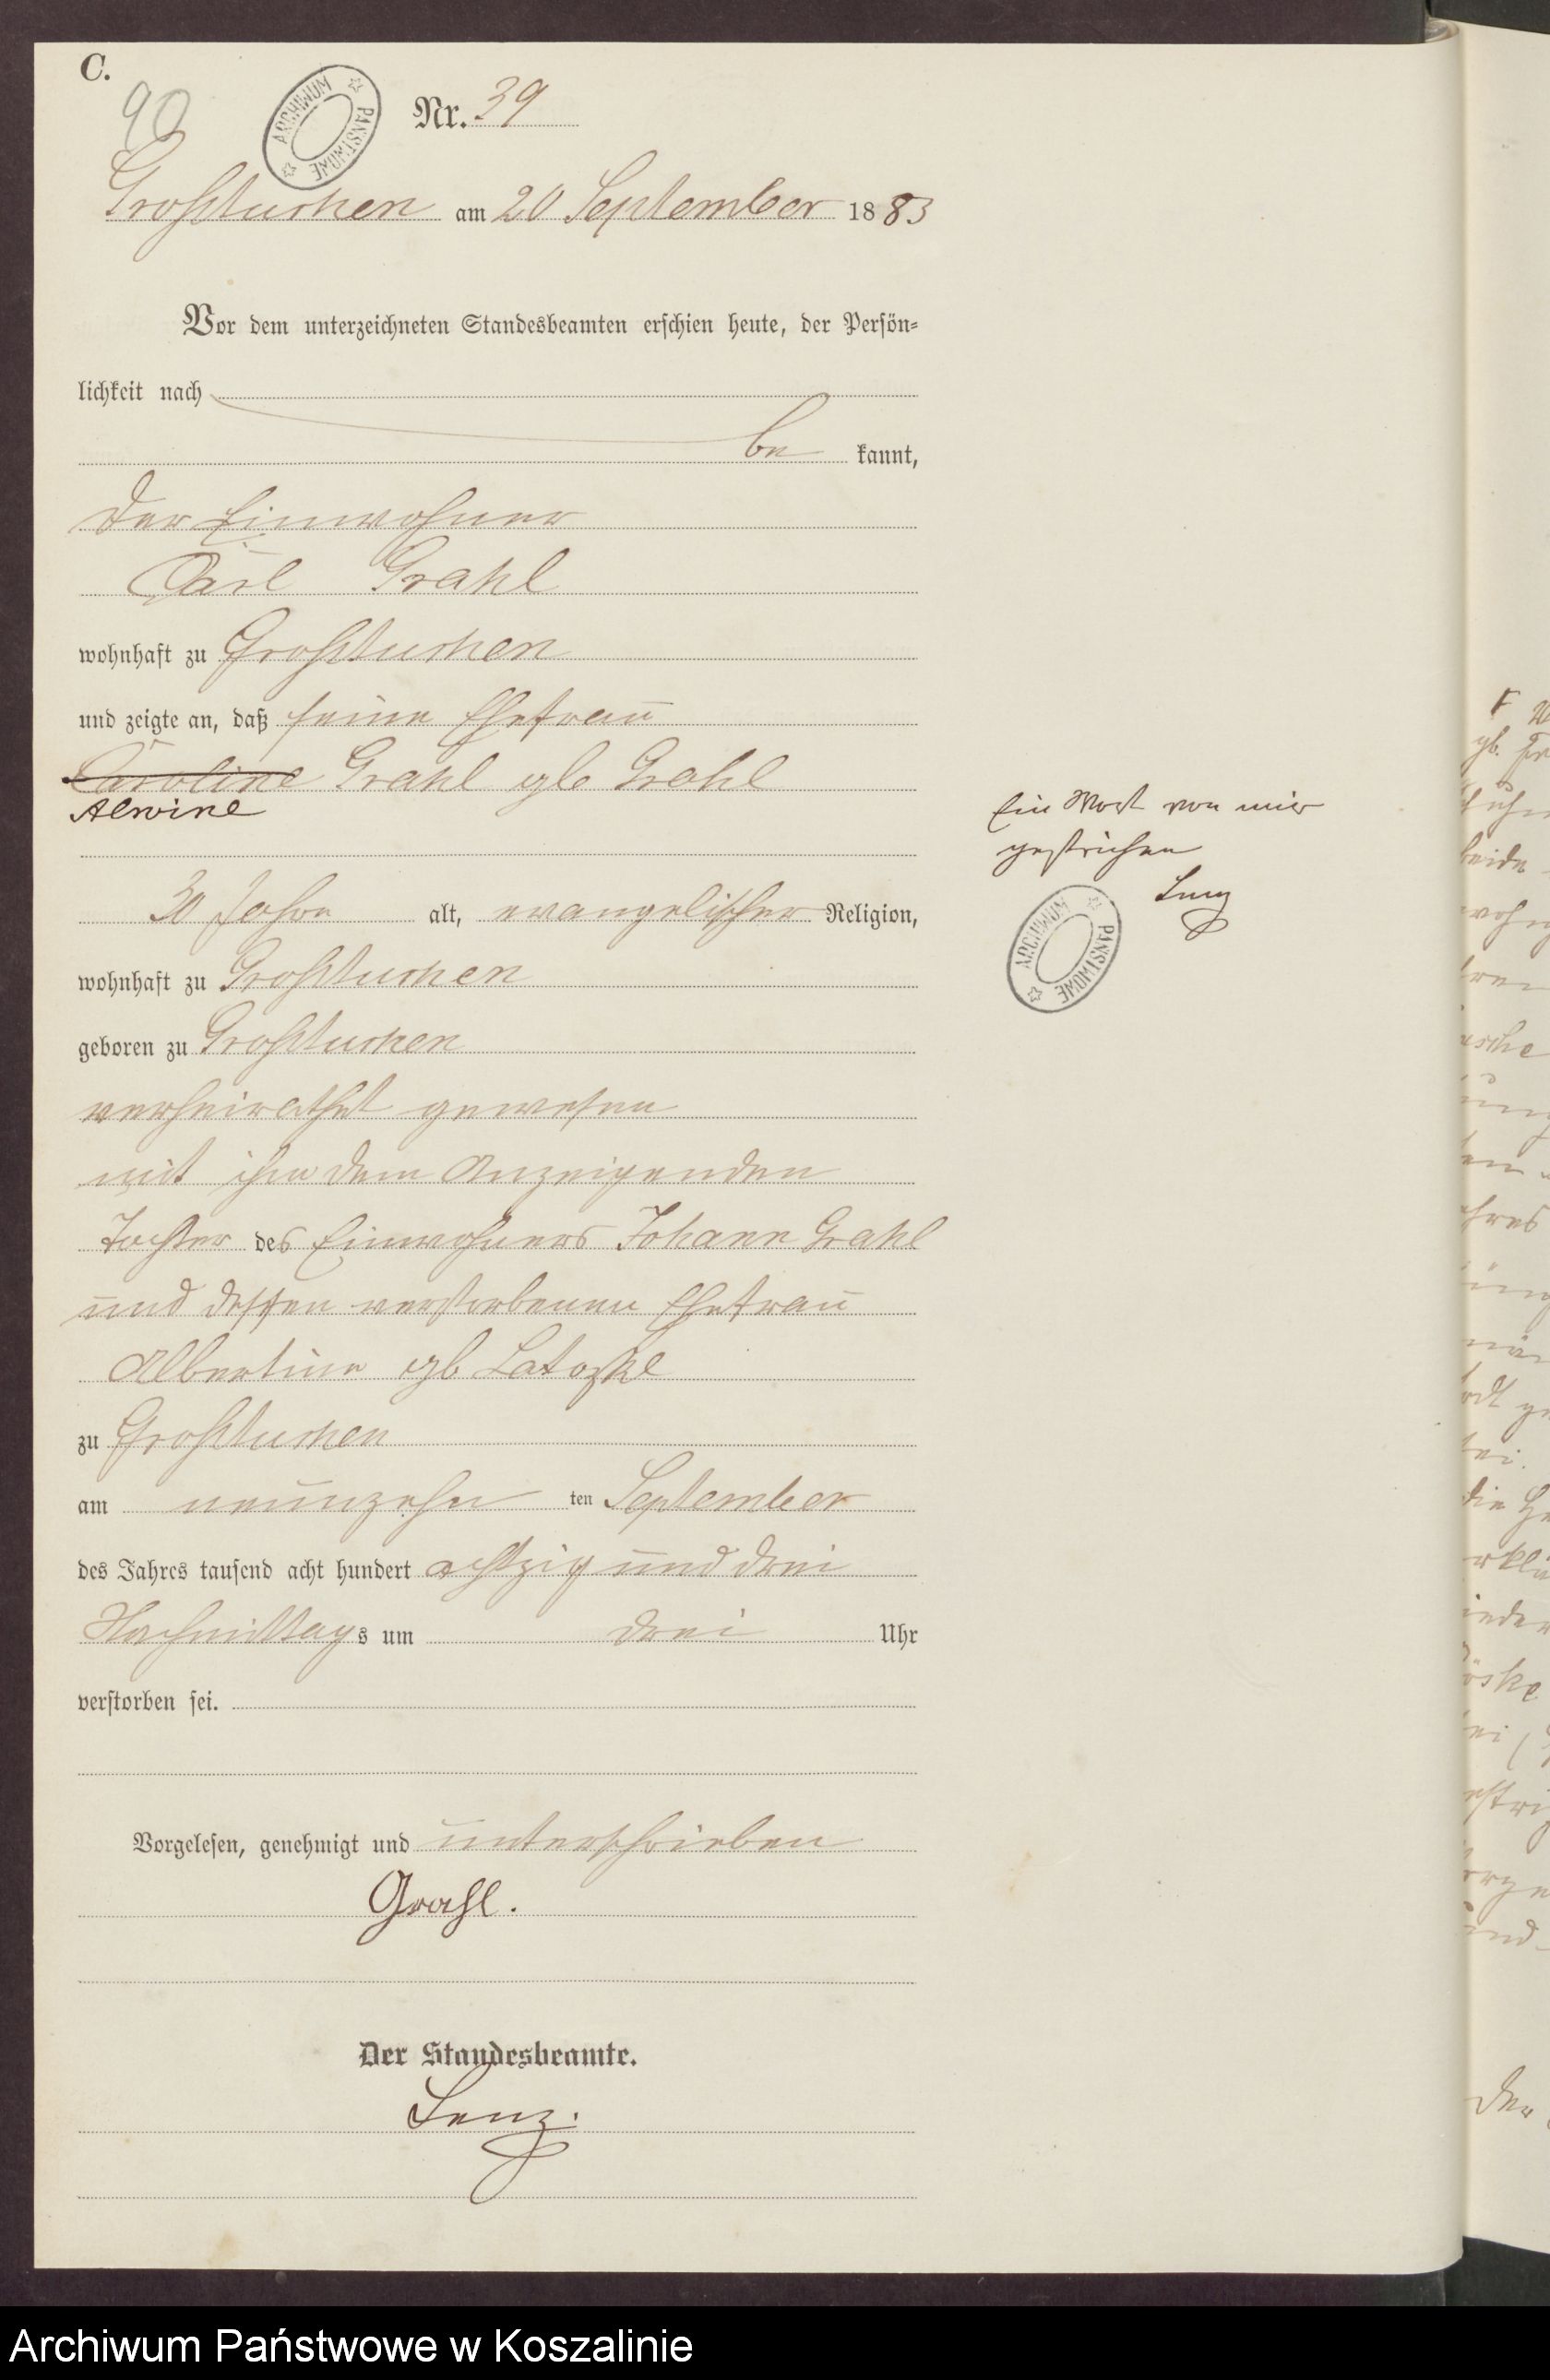 C.
90
ARCHIWUM PAŃSTWOWE
Nr. 39
Großtuchen am 20 September 1883
Vor dem unterzeichneten Standesbeamten erschien heute, der Persön-
lichkeit nach
be kannt,
der Einwohner
Carl Grahl
wohnhaft zu Großtuchen
und zeigte an, daß seine Ehefrau
Caroline Grahl gb Grahl
Alwine
Ein Wort von mir
gestrichen
Lenz
30 Jahre alt, evangelischer Religion,
ARCHIWUM PAŃSTWOWE
wohnhaft zu Großtuchen
geboren zu Großtuchen
verheirathet gewesen
mit ihm dem Anzeigenden
Tochter des Einwohners Johann Grahl
und dessen verstorbenen Ehefrau
Albertine gb
zu Großtuchen
am neunzehn ten September
des Jahres tausend acht hundert achtzig und drei
Nachmittags um drei Uhr
verstorben sei.
Vorgelesen, genehmigt und unterschrieben
Grahl.
Der Standesbeamte.
Lenz.
Archiwum Państwowe w Koszalinie